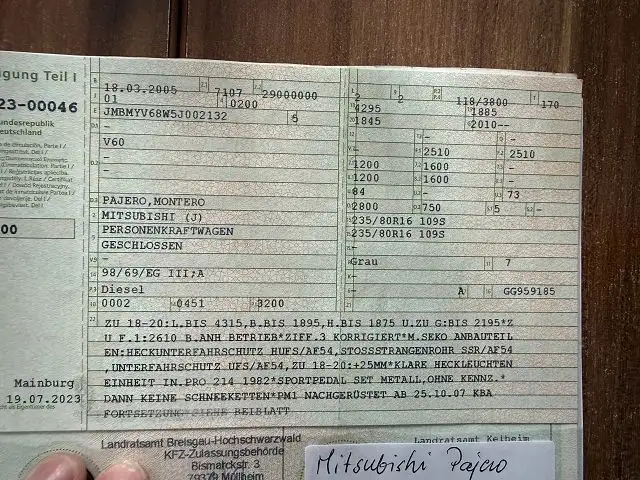 gung Teil I
23-00046
undesrepublik
eutschland
00
Mainburg
19.07.2023
18.03.2005 7107 29000000
01 0200
JMBMYV68W5J002132 6
-
V60
-
-
PAJERO,MONTERO
MITSUBISHI (J)
PERSONENKRAFTWAGEN
GESCHLOSSEN
-
98/69/EG III;A
Diesel
0002 0451 3200
2 2 118/3800 170
4295 1885
1845 2010--
- -
2510 2510
1200 1600 -
1200 1600 -
84 - 73
2800 750 5 -
235/80R16 109S
235/80R16 109S
-
Grau 7
-
- A GG959185
ZU 18-20:L.BIS 4315,B.BIS 1895,H.BIS 1875 U.ZU G:BIS 2195*Z
U F.1:2610 B.ANH BETRIEB*ZIFF.3 KORRIGIERT*M.SEKO ANBAUTEIL
EN:HECKUNTERFAHRSCHUTZ HUFS/AF54,STOSSSTANGENROHR SSR/AF54
,UNTERFAHRSCHUTZ UFS/AF54,ZU 18-20:+25MM*KLARE HECKLEUCHTEN
EINHEIT IN.PRO 214 1982*SPORTPEDAL SET METALL,OHNE KENNZ.*
DANN KEINE SCHNEEKETTEN*PM1 NACHGERÜSTET AB 25.10.07 KBA
FORTSETZUNG SIEHE BEIBLATT
Landratsamt Breisgau-Hochschwarzwald
KFZ-Zulassungsbehörde
Bismarckstr. 3
79379 Müllheim
Landratsamt Kelheim
Mitsubishi Pajero